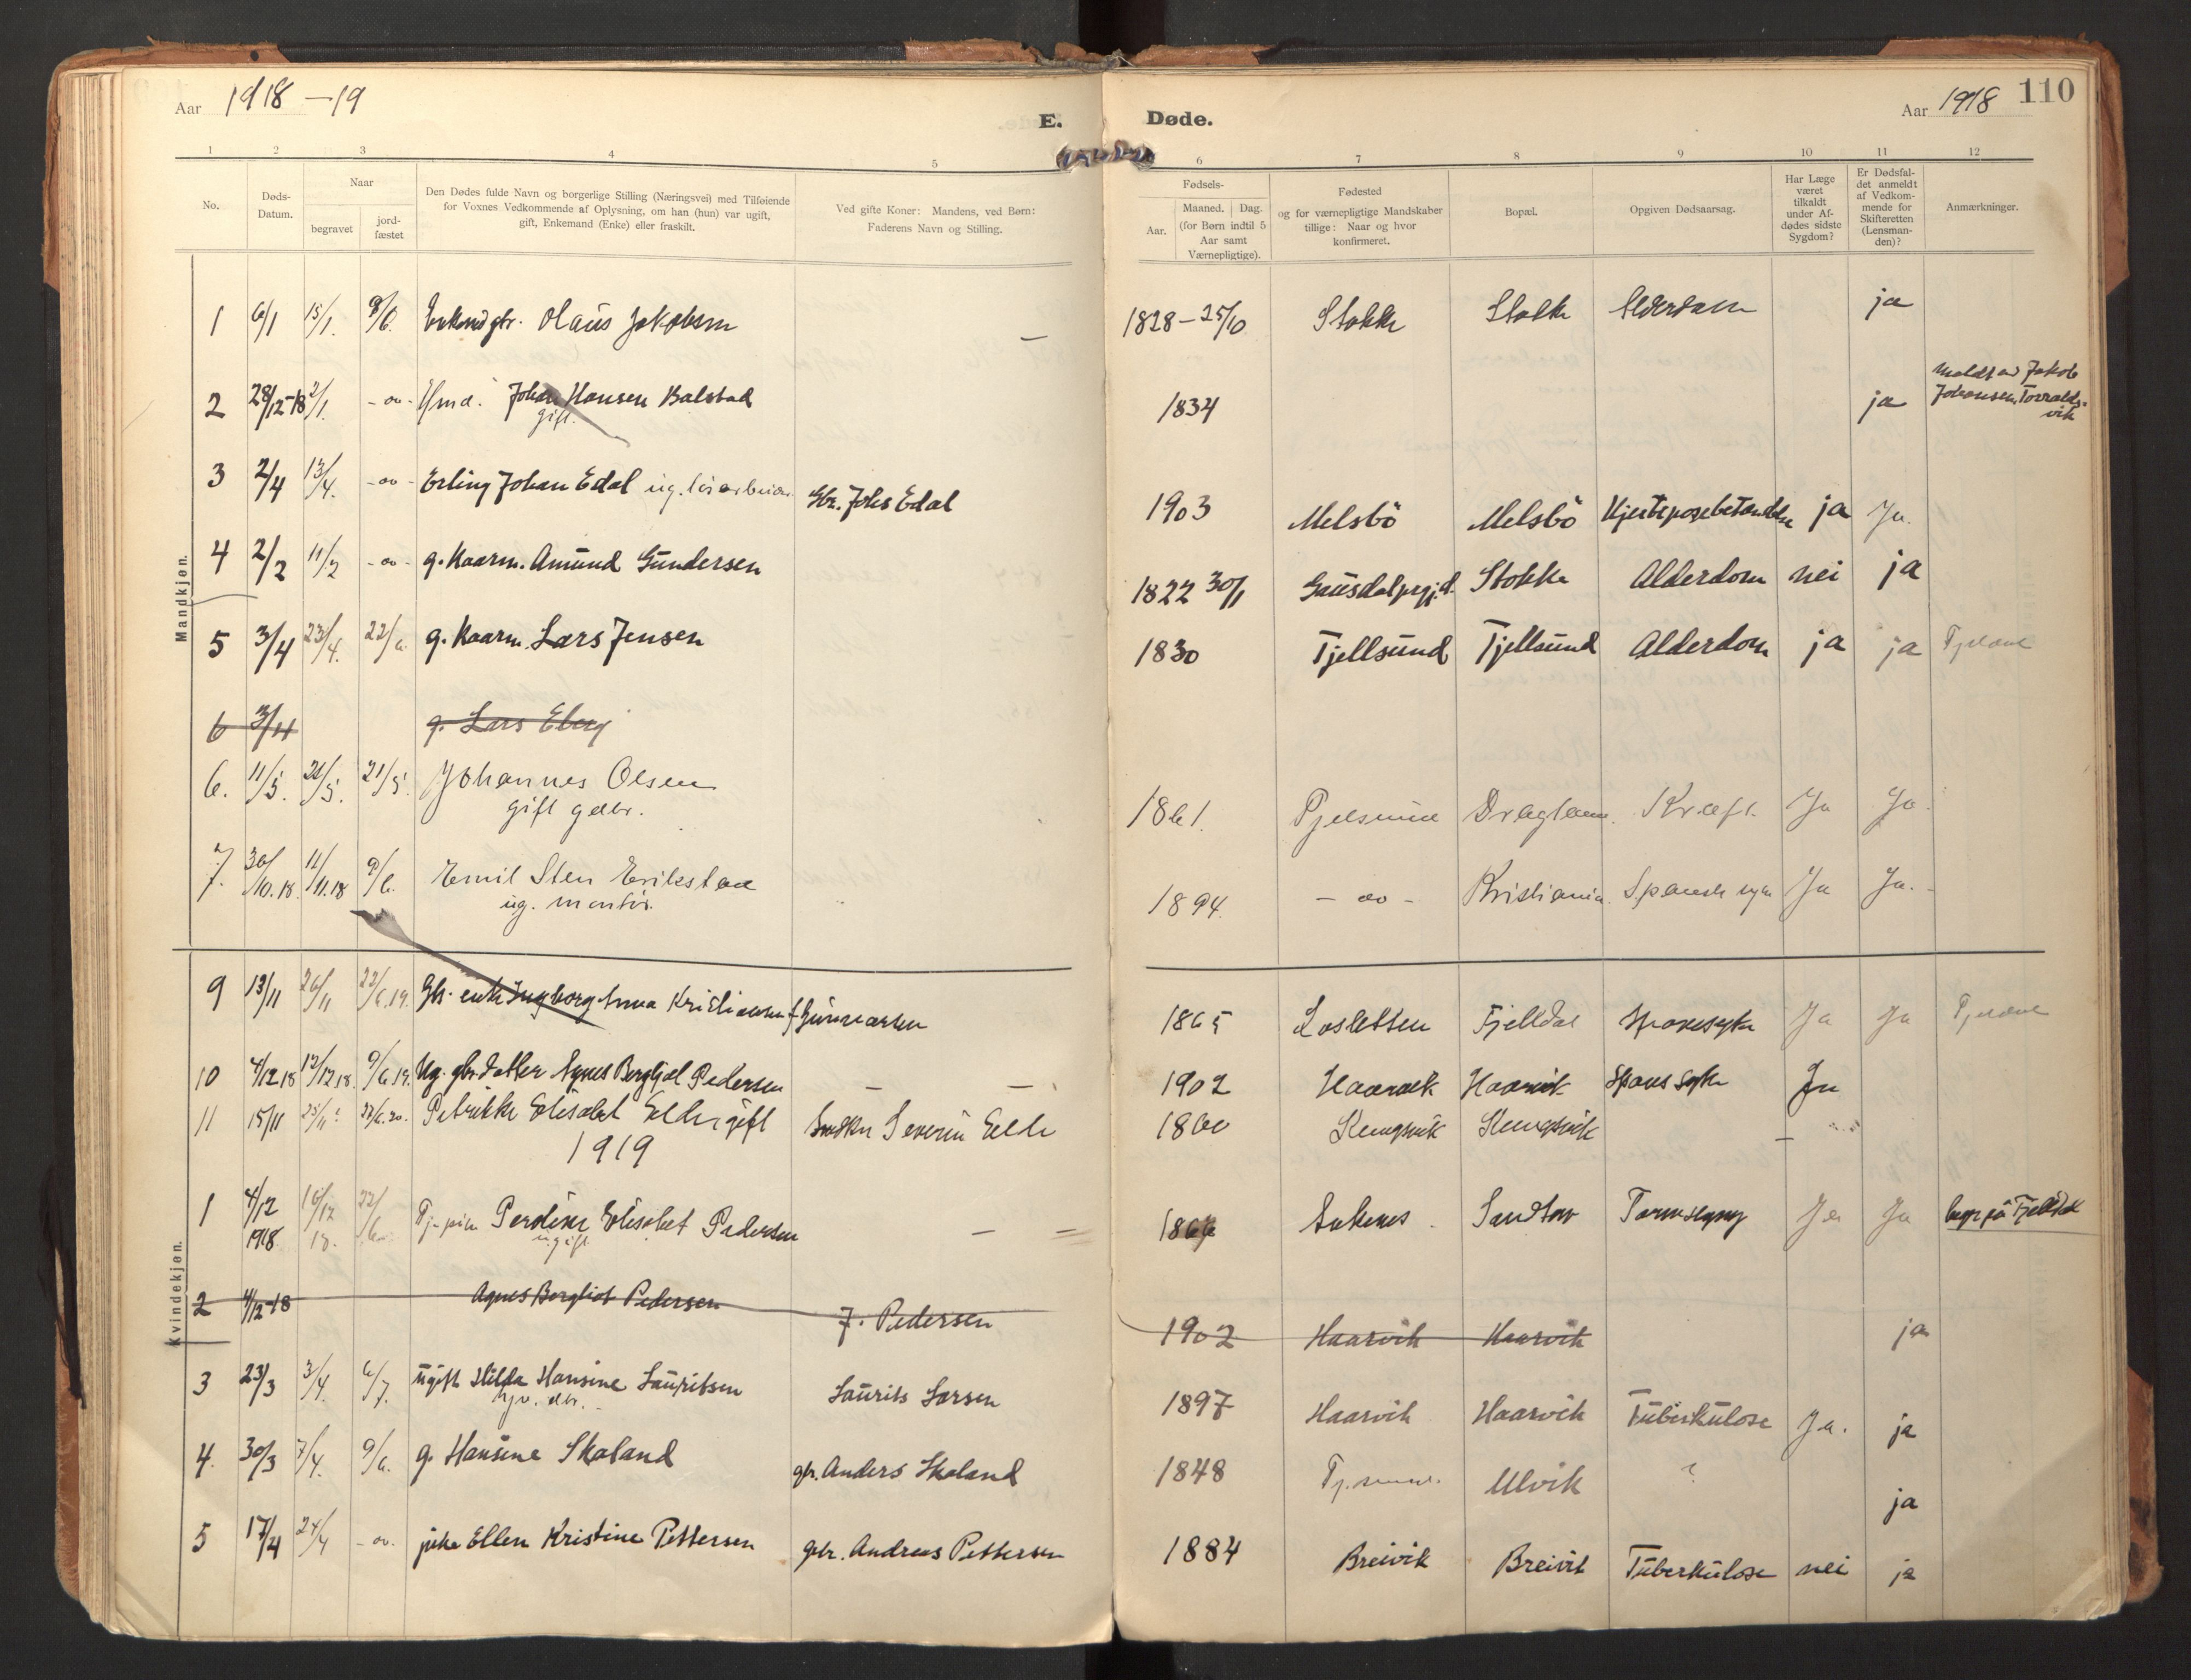 Aar 1918 – 19
E.
Døde.
Aar 1918
110
1 2 3 4 5 6 7 8 9 10 11 12
No.
Døds-
Datum.
Naar
begravet
jord-
fæstet
Den Dødes fulde Navn og borgerlige Stilling (Næringsvei) med Tilføiende
for Voxnes Vedkommende af Oplysning, om han (hun) var ugift,
gift, Enkemand (Enke) eller fraskilt.
Ved gifte Koner: Mandens, ved Børn:
Faderens Navn og Stilling.
Fødsels-
Aar.
Maaned. Dag.
(for Børn indtil 5
Aar samt
Værnepligtige).
Fødested
og for værnepligtige Mandskaber
tillige: Naar og hvor
konfirmeret.
Bopæl.
Opgiven Dødsaarsag.
Har Læge
været
tilkaldt
under Af-
dødes sidste
Sygdom?
Er Dødsfal-
det anmeldt
af Vedkom-
mende for
Skifteretten
(Lensman-
den)?
Anmærkninger.
Mandkjøn.
1 6/1 15/1. 9/6. Olaus Jakobsen — 1828 – 25/10 Stokke Stokke Alderdom ja
2 28/12-18 2/1. -oo- Johan Hansen Balstad 1834 ja meldt av Jakob
gift. Johansen, Torralds-
vik
3 2/4 13/4. -oo- Erling Johan Edal ug. Gbr. Johs Edal 1903 Melsbö Melsbö Hjerteposebetændelse ja Ja.
4 2/2 11/2 -oo- g. Kaarm. Amund Gundersen 1822 30/1 Gausdal prgjd. Stokke Alderdom nei ja
5 3/4 23/4. 22/6. g. Kaarm. Lars Jensen 1830 Tjellsund Tjellsund Alderdom ja ja
6 3/4 g. Lars Eberg
6. 11/5. 21/5. 21/5. Johannes Olsen
gift gdbr. 1861. Tjelsund Kræft. Ja Ja.
7. 30/10.18. 11/11.18 9/6. Emil Sten Erikstad
ug. montör. 1894. -oo- Kristiania. Spansk syke Ja Ja.
Kvindekjøn.
9 13/11 26/11 22/6.19. Gbr. enke Ingborg Anna Kristiansen f. Gunnarsen 1865 Fjelldal Spansksyke Ja Ja
10 4/12 18 12/12 18. 9/6.19. Ug. gbr. datter Agnes Bergljot Pedersen — — 1902 Haarvik Haarvik Spansk syke Ja
11 15/11 25/11 22/6.20. Petrikke Elisabet gift Severin 1860
1919
1 4/12 1918 16/12 18. 22/6. Tj. pike Perdine Elisabet Pedersen
ugift — = Sandtorv Ja Ja begr. på Fjelldal
2 4/12-18 Agnes Bergliot Pedersen J. Pedersen 1902 Haarvik Haarvik ja
3 23/3 3/4. 6/7. ugift Hilda Hansine Lauritsen Laurits Larsen 1897 Haarvik Haarvik Tuberkulose Ja. ja
4. 30/3 7/4. 9/6. g. Hansine Skoland gbr. Anders Skoland 1848 Ulvik ? ja
5 17/4 24/4 -oo- pike Ellen Kristine Pettersen gbr. Andreas Pettersen 1884 Breivik Breivik Tuberkulose nei ja